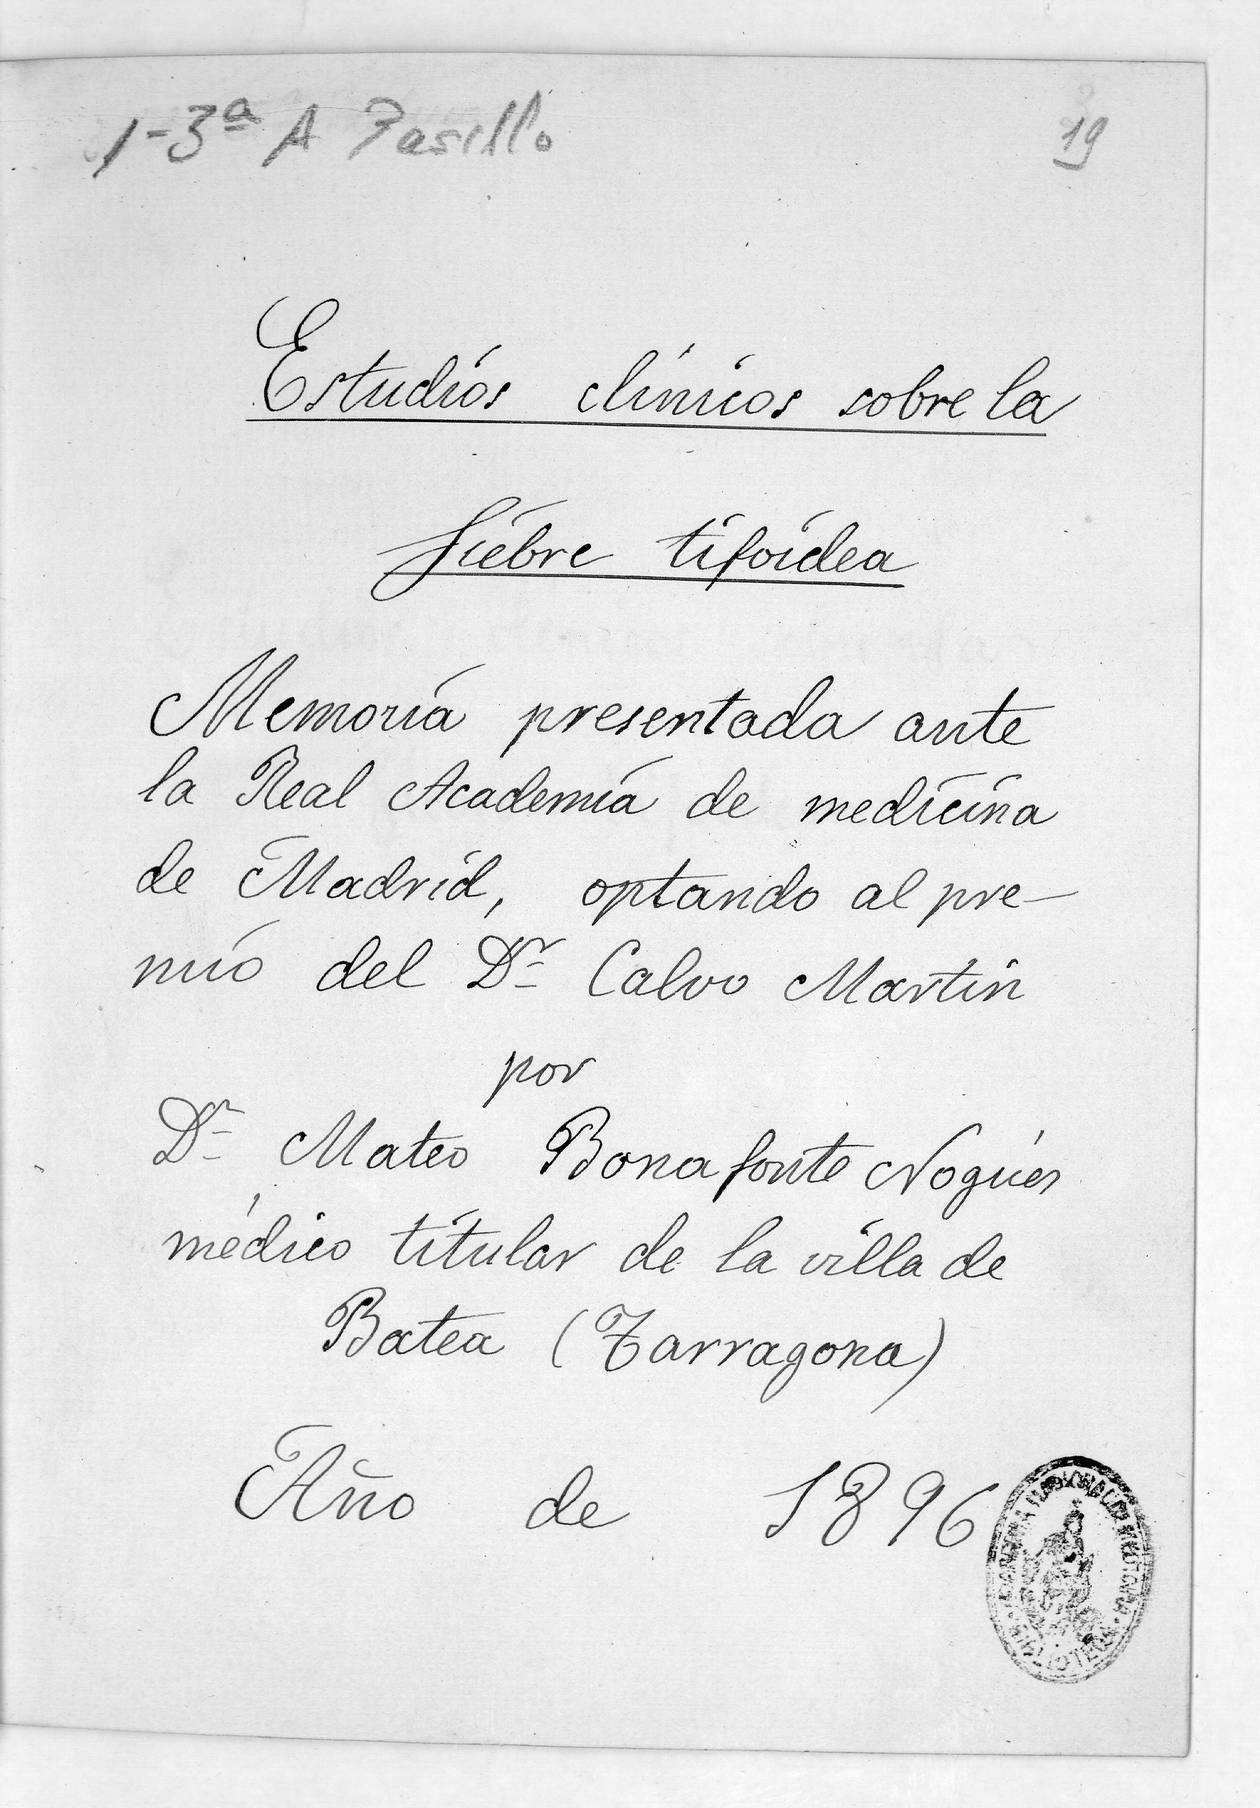 1-3ª A Pasillo
19
Estudios clínicos sobre la
fiebre tifoidea
Memoria presentada ante
la Real Academia de medicina
de Madrid, optando al pre-
mio del Dr Calvo Martin
por
Dr Mateo Bonafonte Nogués
médico titular de la villa de
Batea (Tarragona)
Año de 1896